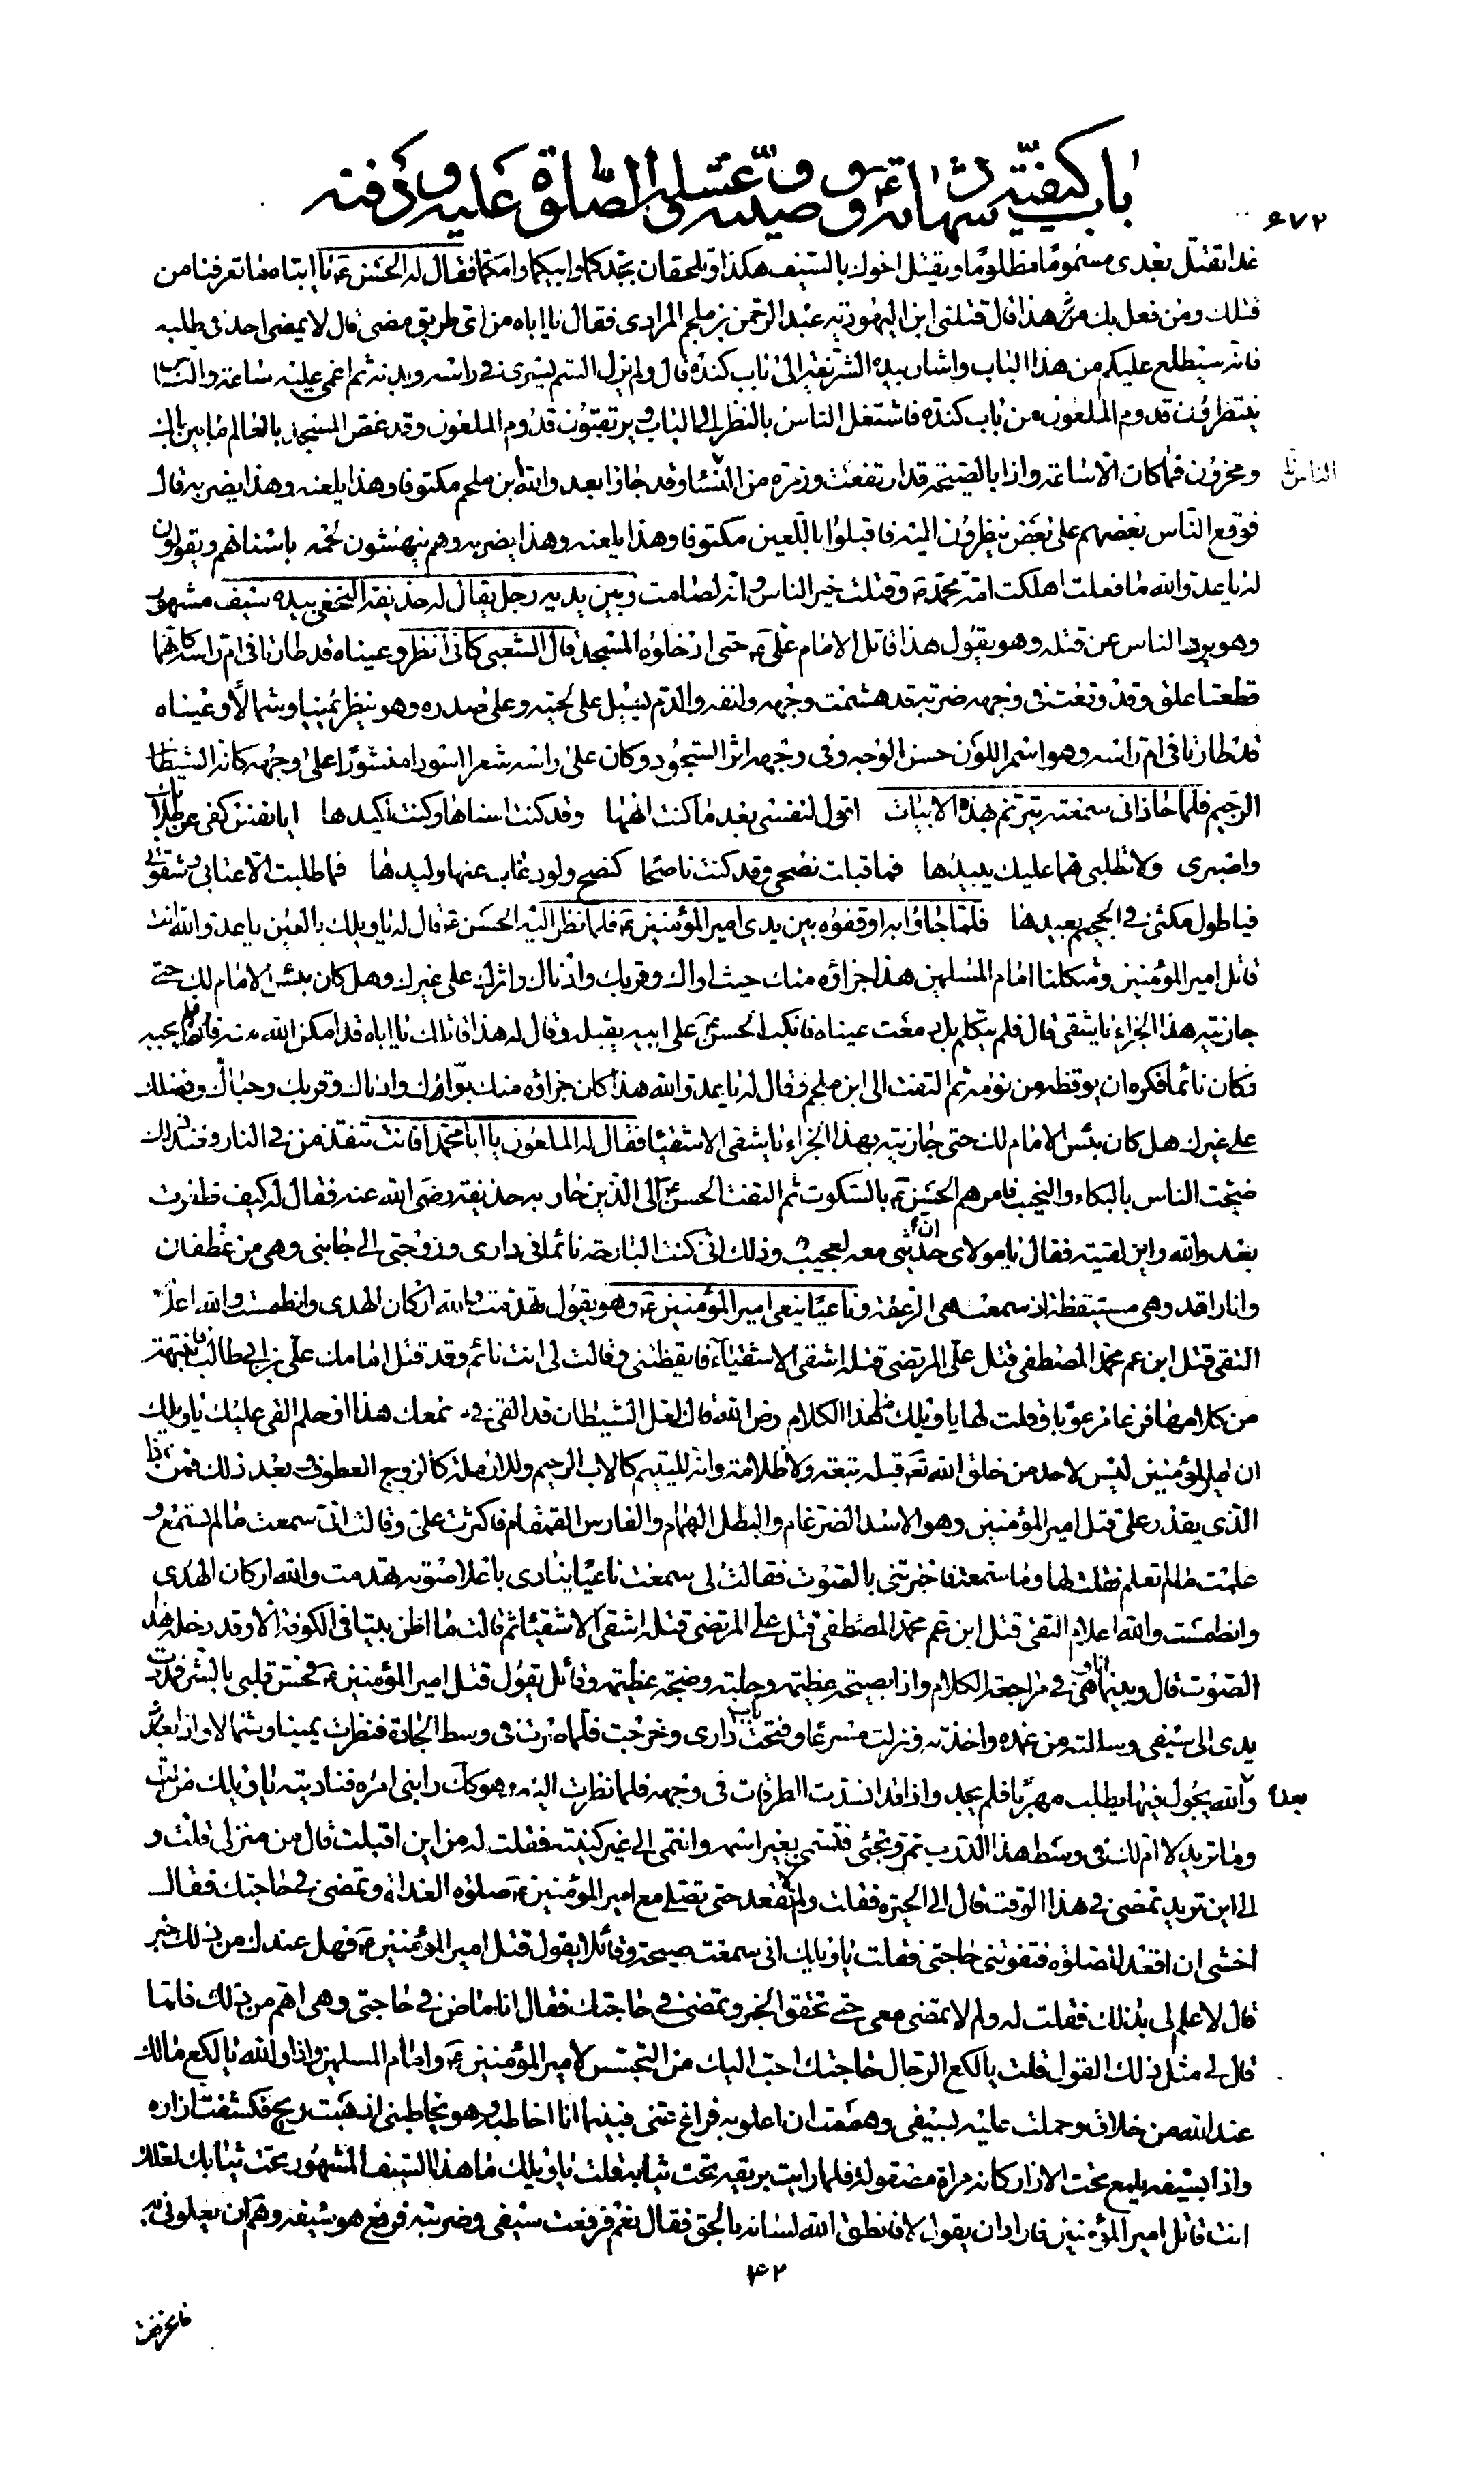 باب كيفيّة شهادته ع ووصيّته وغسله والصّلوة عليه ودفنه
۶۷۲
غدا تقتل بعدى مسموما مظلوما ويقتل اخوك بالسيف هكذا وتلحقان بجدكما وابيكما وامكما فقال له الحسن ع يا ابتاه ما تعرفنا من
قتلك ومن فعل بك هذا قال قتلنى ابن اليهودية عبد الرحمن بن ملجم المرادى فقال يا اباه من اى طريق مضى قال لا يمضى احد فى طلبه
فانه سيطلع عليكم من هذا الباب واشار بيده الشريفة الى باب كندة قال ولم يزل السم يسرى فى راسه وبدنه ثم اغمى عليه ساعة والناس
ينتظرون قدوم الملعون من باب كندة فاشتغل الناس بالنظر الى الباب ويرتقبون قدوم الملعون وقد غص المسجد بالعالم ما بين باك
ومحزون فما كان الا ساعة واذا بالصيحة قد ارتفعت وزمرة من الناس وقد جاؤا بعدو الله ابن ملجم مكتوفا وهذا يلعنه وهذا يضربه قال
الناس
فوقع الناس بعضهم على بعض ينظرون اليه فاقبلوا باللعين مكتوفا وهذا يلعنه وهذا يضربه وهم ينهشون لحمه باسنانهم ويقولون
له يا عدو الله ما فعلت اهلكت امة محمد وقتلت خير الناس وانه لصامت وبين يديه رجل يقال له حذيفة النخعى بيده سيف مشهور
وهو يرد الناس عن قتله وهو يقول هذا قاتل الامام على ع حتى ادخلوه المسجد قال الشعبى كانى انظر وعيناه قد طارتا فى ام راسه كانهما
قطعتا علق وقد وقعت فى وجهه ضربة قد هشمت وجهه وانفه والدم يسيل على لحيته وعلى صدره وهو ينظر يمينا وشمالا وعيناه
قد طارتا فى ام راسه وهو اسمر اللون حسن الوجه وفى وجهه اثر السجود وكان على راسه شعر اسود منشورا على وجهه كانه الشيطان
الرجيم فلما حاذانى سمعته يترنم بهذه الابيات اقول لنفسى بعد ما كنت انهها وقد كنت اسناها وكنت اكيدها ايا نفس كفى عن طلابك
واصبرى ولا تطلبى هما عليك يبيدها فما قبلت نصحى وقد كنت ناصحا كنصح ولود غاب عنها وليدها فما طلبت الا عنائى وشقوتى
فيا طول مكثى فى الجحيم بعيدها فلما جاؤا به اوقفوه بين يدى امير المؤمنين ع فلما نظر اليه الحسن ع قال له يا ويلك يا لعين يا عدو الله انت
قاتل امير المؤمنين ومثكلنا امام المسلمين هذا جزاؤه منك حيث اواك وقربك وادناك واثرك على غيرك وهل كان بئس الامام لك حتى
جازيته هذا الجزاء يا شقى قال فلم يتكلم بل دمعت عيناه فانكب الحسن ع على ابيه يقبله وقال له هذا قاتلك يا اباه قد امكن الله منه فلم يجبه
وكان نائما فكره ان يوقظه من نومه ثم التفت الى ابن ملجم وقال له يا عدو الله هذا كان جزاؤه منك بواك وادناك وقربك وحباك وفضلك
على غيرك هل كان بئس الامام لك حتى جازيته بهذا الجزاء يا شقى الاشقياء فقال له الملعون يا ابا محمد افانت تنقذ من فى النار فعند ذلك
ضجت الناس بالبكاء والنحيب فامرهم الحسن ع بالسكوت ثم التفت الحسن ع الى الذى جاء به حذيفة رضى الله عنه فقال له كيف ظفرت
بعدو الله واين لقيته فقال يا مولاى ان حديثى معه لعجيب وذلك انى كنت البارحة نائما فى دارى وزوجتى الى جانبى وهى من غطفان
وانا راقد وهى مستيقظة اذ سمعت هى الزعقة وناعيا ينعى امير المؤمنين ع وهو يقول تهدمت والله اركان الهدى وانطمست والله اعلام
التقى قتل ابن عم محمد المصطفى قتل على المرتضى قتله اشقى الاشقياء فايقظتنى وقالت لى انت نائم وقد قتل امامك على بن ابى طالب فانتبهت
من كلامها فزعا مرعوبا وقلت لها يا ويلك ما هذا الكلام رض الله فاك لعل الشيطان قد القى فى سمعك هذا او حلم القى عليك يا ويلك
ان امير المؤمنين ليس لاحد من خلق الله تع قبله تبعة ولا ظلامة وانه لليتيم كالاب الرحيم وللارملة كالزوج العطوف وبعد ذلك فمن ذا
الذى يقدر على قتل امير المؤمنين وهو الاسد الضرغام والبطل الهمام والفارس القمقام فاكثرت على وقالت انى سمعت ما لم تسمع و
علمت ما لم تعلم فقلت لها وما سمعت فاخبرتنى بالصوت فقالت لى سمعت ناعيا ينادى باعلا صوته تهدمت والله اركان الهدى
وانطمست والله اعلام التقى قتل ابن عم محمد المصطفى قتل على المرتضى قتله اشقى الاشقياء ثم قالت ما اظن بيتا فى الكوفة الا وقد دخله هذا
الصوت قال وبينما انا وهى فى مراجعة الكلام واذا بصيحة عظيمة وجلبة وضجة عظيمة وقائل يقول قتل امير المؤمنين ع فحس قلبى بالشر فمددت
يدى الى سيفى وسللته من غمده واخذته ونزلت مسرعا وفتحت باب دارى وخرجت فلما صرت فى وسط الجادة فنظرت يمينا وشمالا واذا بعدو
والله يجول فيها يطلب مهربا فلم يجد واذا قد انسدت الطرقات فى وجهه فلما نظرت اليه وهو كك رابنى امره فناديته يا ويلك من انت
وما تريد لا ام لك فى وسط هذا الدرب تمر وتجئ فتسمى بغير اسمه وانتمى الى غير كنيته فقلت له من اين اقبلت قال من منزلى قلت و
الى اين تريد تمضى فى هذا الوقت قال الى الحيرة فقلت ولم لا تقعد حتى تصلى مع امير المؤمنين ع صلوة الغداة وتمضى فى حاجتك فقال
اخشى ان اقعد للصلوة فتفوتنى حاجتى فقلت يا ويلك انى سمعت صيحة وقائلا يقول قتل امير المؤمنين ع فهل عندك من ذلك خبر
قال لا علم لى بذلك فقلت له ولم لا تمضى معى حتى تحقق الخبر وتمضى فى حاجتك فقال انا ماض فى حاجتى وهى اهم من ذلك فلما
قال لى مثل ذلك القول قلت يا لكع الرجال حاجتك احب اليك من التجسس لامير المؤمنين ع وامام المسلمين واذا والله يا لكع مالك
عند الله من خلاق وحملت عليه بسيفى وهممت ان اعلو به فراغ عنى فبينما انا اخاطبه وهو يخاطبنى اذ هبت ريح فكشفت ازاره
واذا بسيفه يلمع تحت الازار كانه مراة مصقولة فلما رايت بريقه تحت ثيابه قلت يا ويلك ما هذا السيف المشهور تحت ثيابك لعلك
انت قاتل امير المؤمنين فاراد ان يقول لا فانطق الله لسانه بالحق فقال نعم فرفعت سيفى وضربته فرفع هو سيفه وهم ان يعلونى به
۴۲
فانحرفت